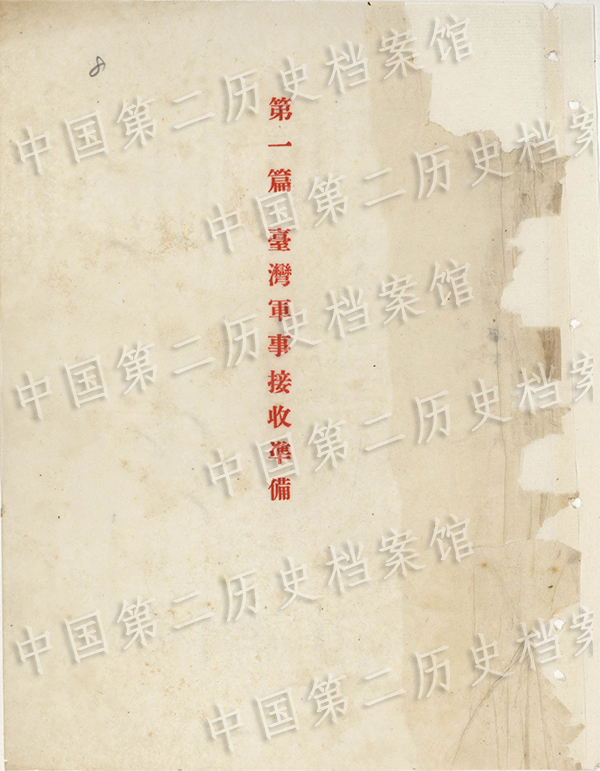 8
第一篇 臺灣軍事接收準備
中国第二历史档案馆
中国第二历史档案
中国第二历史档案馆
中国第二历史档案
中国第二历史档案馆
中国第二历史档案